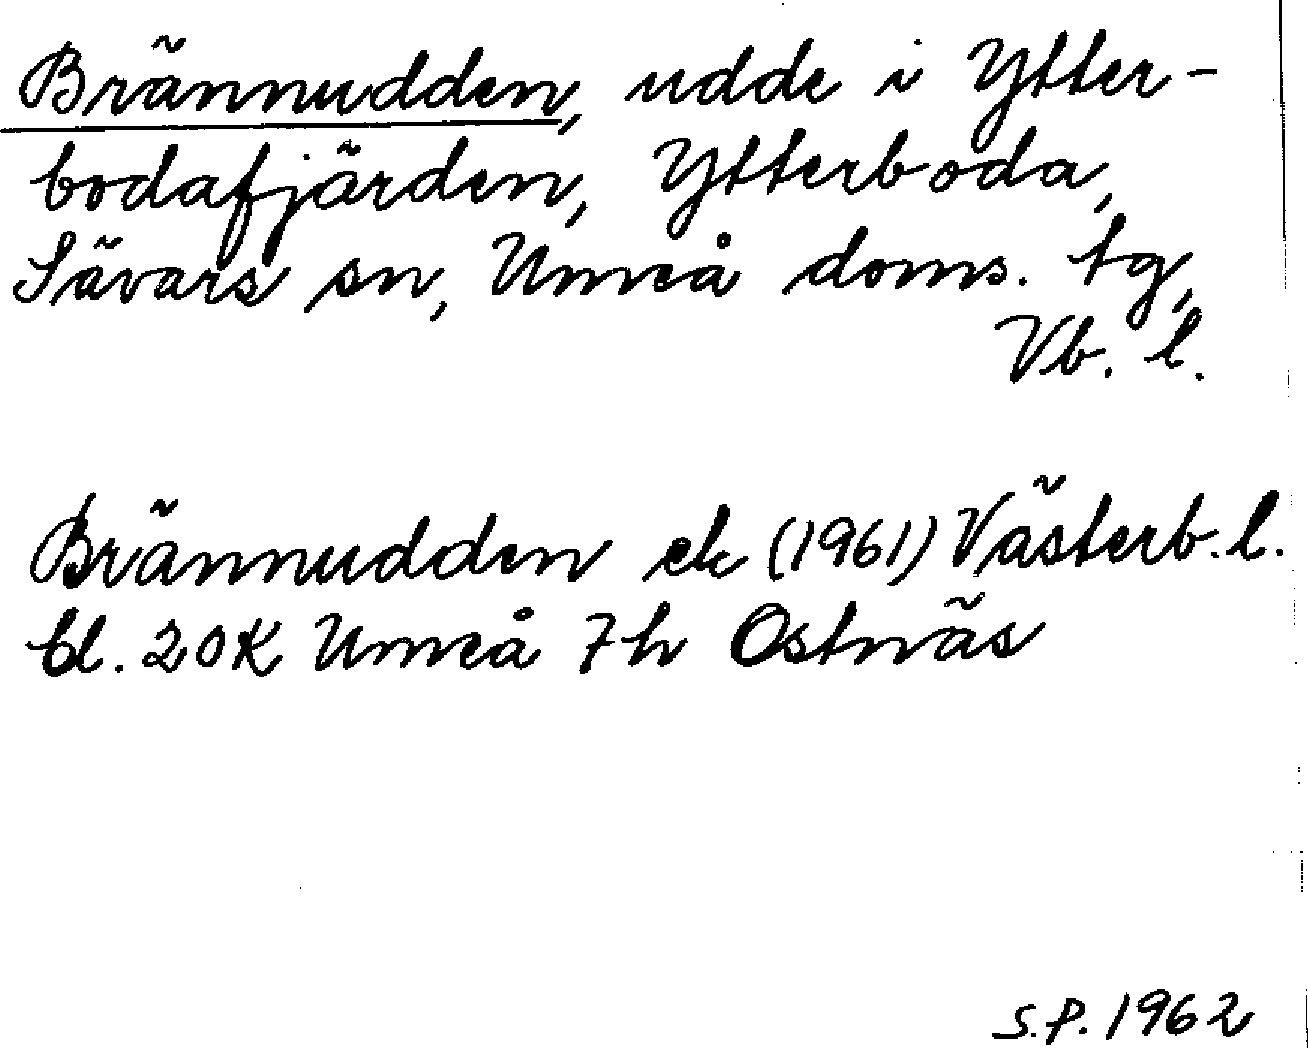 Brännudden, udde i Ytter-
bodafjärden, Ytterboda,
Sävars sn, Umeå doms. tg,
Vb. l.
Brännudden ek (1961) Västerb. l.
bl. 20K Umeå 7h Ostnäs
S.P. 1962